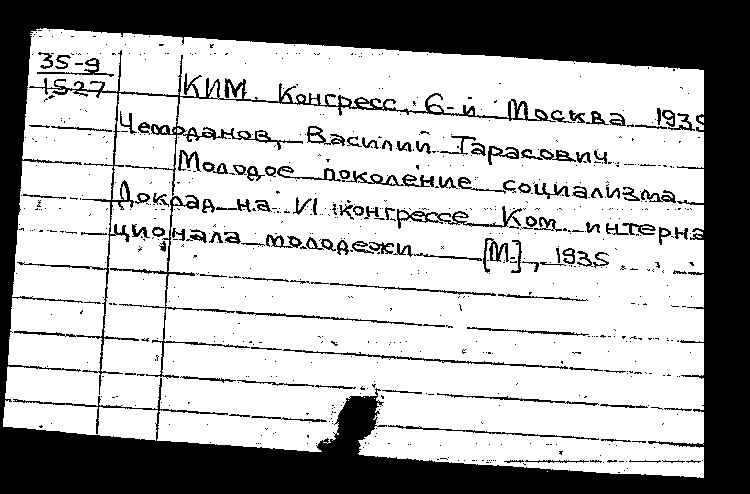 35-9
1527
КИМ. Конгресс, 6-й Москва 1935
Чемоданов, Василий Тарасович.
Молодое поколение социализма.
Доклад на VI конгрессе Ком. интерна
ционала молодежи [М.], 1935